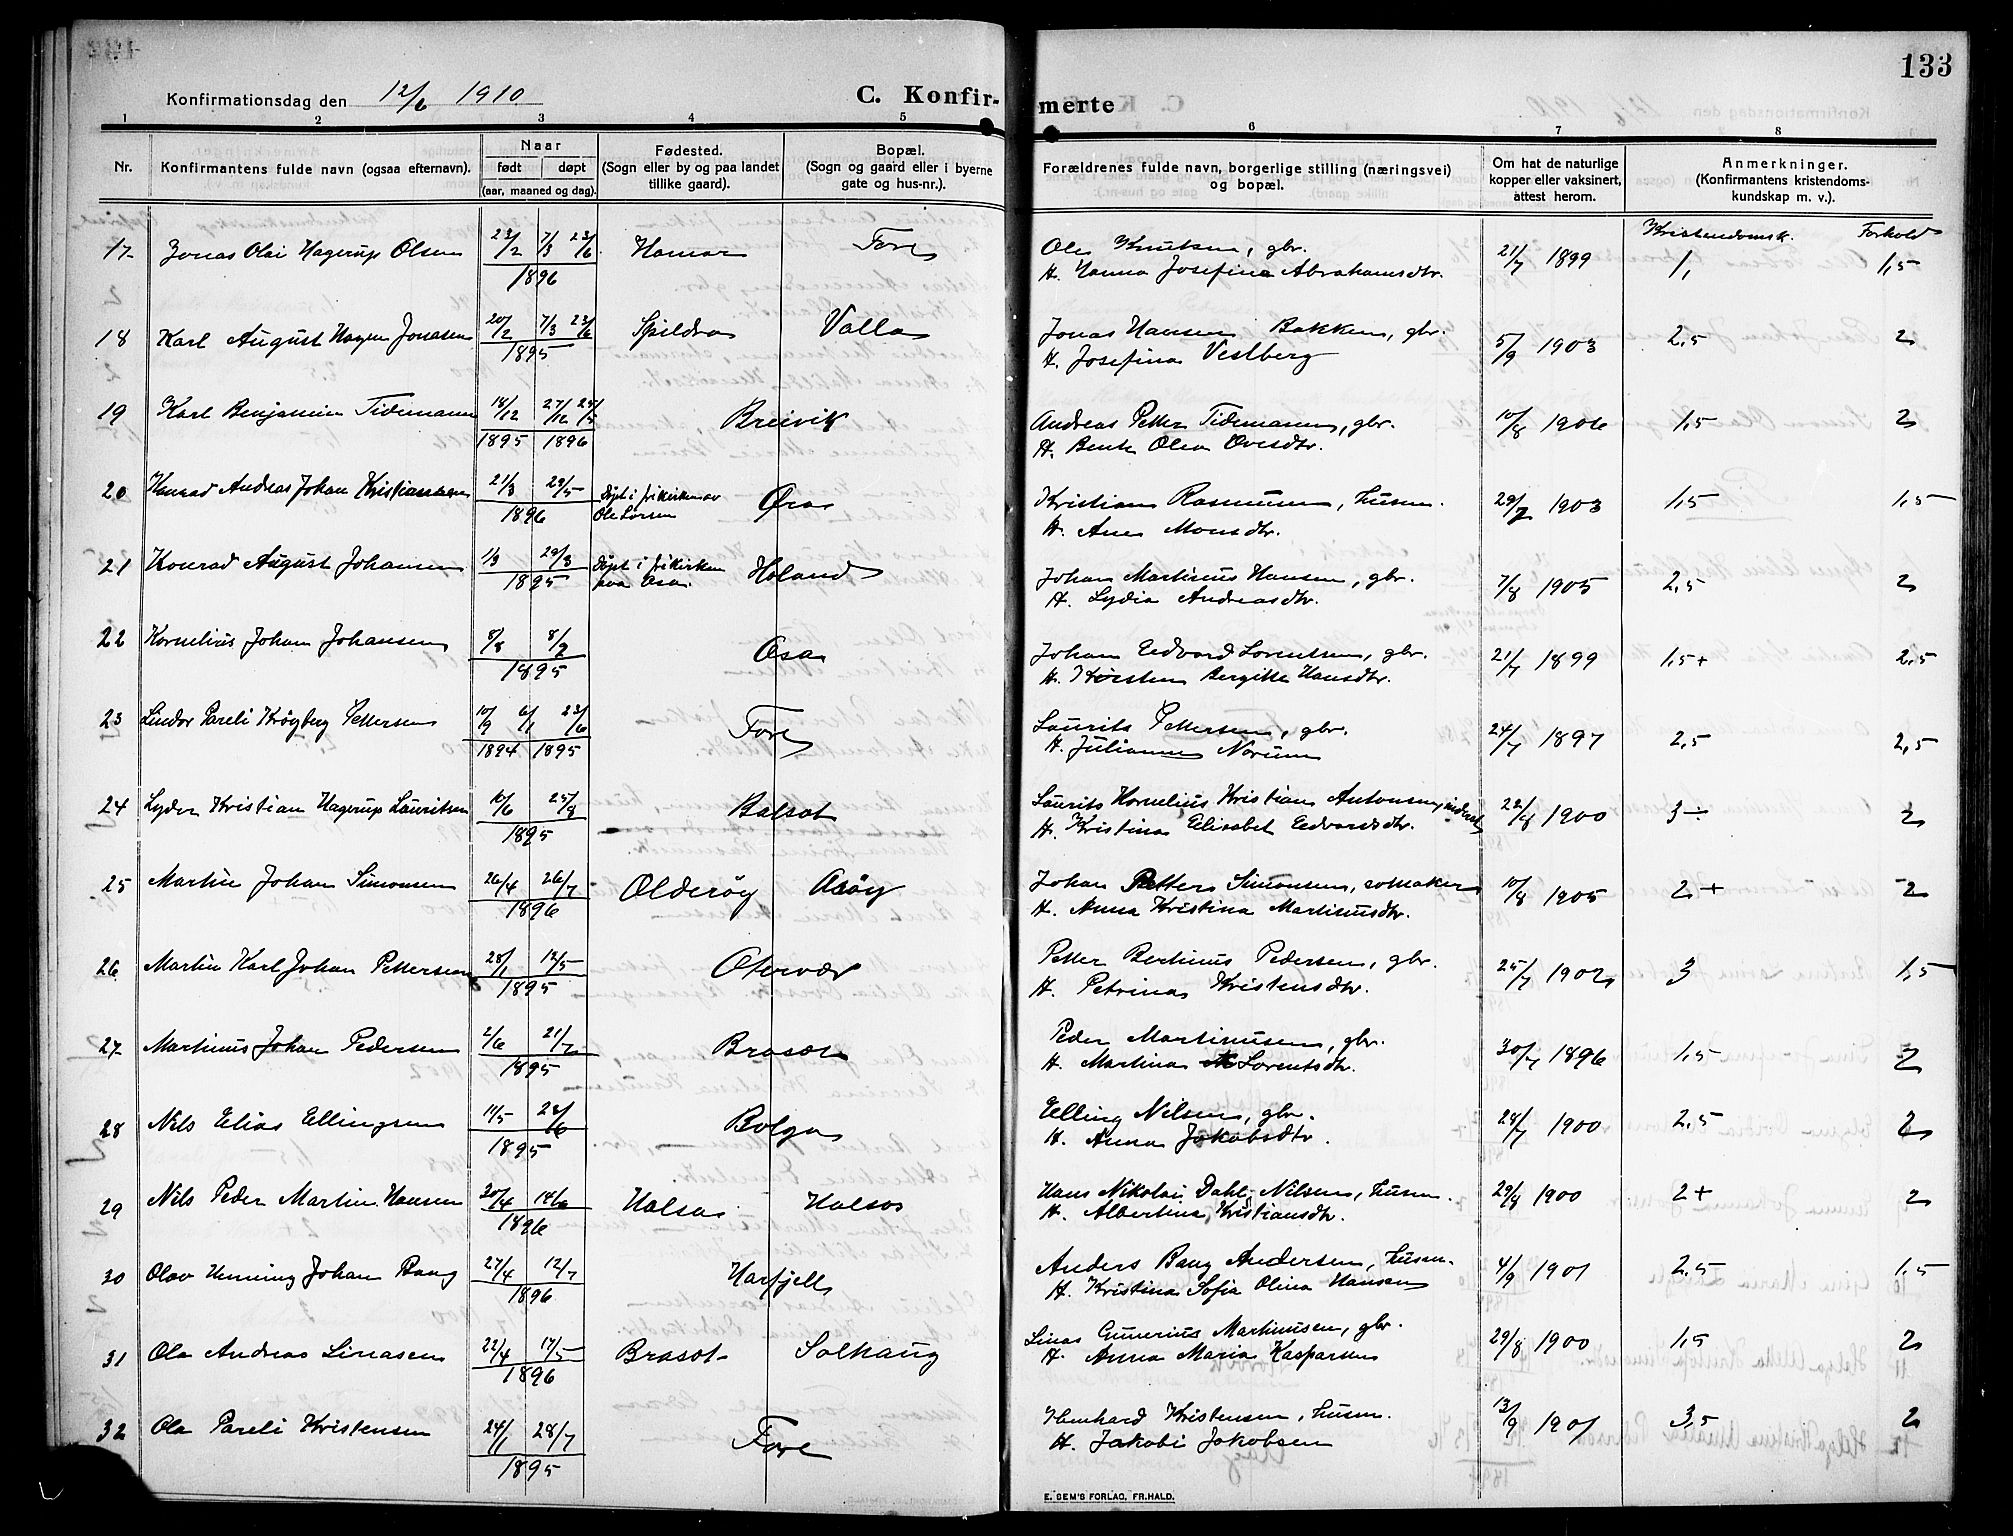 133
Konfirmationsdag den 12/6 1910
C. Konfir-merte
1 2 3 4 5 6 7 8
Nr.
Konfirmantens fulde navn (ogsaa efternavn).
Naar
født døpt
(aar, maaned og dag).
Fødested.
(Sogn eller by og paa landet
tillike gaard).
Bopæl.
(Sogn og gaard eller i byerne
gate og hus-nr.).
Forældrenes fulde navn, borgerlige stilling (næringsvei)
og bopæl.
Om hat de naturlige
kopper eller vaksinert,
attest herom.
Anmerkninger.
(Konfirmantens kristendoms-
kundskap m. v.).
Kristendomsk. Forhold
17 Jonas Olai Hagerup Olsen 23/2 7/3 23/6 Hamar Fore Ole Knutsen, gbr. 21/7 1899 1, 1,5
1896 H. Hanna Josefine Abrahamsdtr.
18 Karl August Hagen Jonasen 20/2 7/3 23/6 Spildra Valla Jonas Hansen Bakken, gbr. 5/9 1903 2,5 2
1895 H. Josefina Vestberg
19 Karl Benjamin Tidemann 18/12 27/12 Breivik Andreas Petter Tidemann, gbr. 10/8 1906 1,5 2
1895 1896 H. Bente Olea Ovesdtr.
20 Konrad Andreas Johan Kristiansen 21/3 29/5 Døpt i frikirken av Øra Kristian Rasmussen, husm. 29/7 1903 1,5 1,5
1896 Ole Larsen H. Ane Monsdtr.
21 Konrad August Johansen 1/3 29/3 Døpt i frikirken Høland Johan Martinus Hansen, gbr. 7/8 1905 2,5 2
1895 paa Åsa. H. Lydia Andreasdtr.
22 Kornelius Johan Johansen 8/8 8/7 Åsa Johan Edvard Lorentsen, gbr. 21/7 1899 1,5+ 2,5
1895 H. Kirsten Bergitte Hansdtr.
23 Lindor Pareli Krøgberg Pettersen 10/9 6/1 23/6 Fore Laurits Pettersen, gbr. 24/7 1897 2,5 2,5
1894 1895 H. Julianne Norum
24 Lyder Kristian Hagerup Lauritsen 10/6 25/8 Balsot Laurits Kornelius Kristian Antonsen, inderst 22/8 1900 3÷ 2
1895 H. Kristina Elisabet Edvardsdtr.
25 Martin Johan Simonsen 26/4 26/7 Olderøy Åsøy Johan Petter Simonsen, 10/8 1905 2+ 2
1896 H. Anna Kristina Martinusdtr.
26 Martin Karl Johan Pettersen 28/1 12/5 Otervær Petter Bertinus Pedersen, gbr. 25/7 1902 3 1,5
1895 H. Petrina Kristensdtr.
27 Martinus Johan Pedersen 2/6 21/7 Brasot Peder Martinusen, gbr. 30/7 1896 1,5 2
1895 H. Martina Lorentsdtr.
28 Nils Elias Ellingsen 11/5 23/6 Bolga Elling Nilsen, gbr. 24/7 1900 2,5 2
1895 H. Anna Jakobsdtr.
29 Nils Peder Martin Hansen 30/4 14/6 Halsa Halsos Hans Nikolai Dahl Nilsen, husm. 29/8 1900 2+ 2
1896 H. Albertina Kristiansdtr.
30 Olav Henning Johan Bang 27/4 12/7 Harfjell Anders Bang Andersen, husm. 4/9 1901 2,5 1,5
1896 H. Kristina Sofia Olina Hansen
31 Ola Andreas Linasen 22/4 17/5 Brasot Solhaug Linas Gunerius Martinusen, gbr. 29/8 1900 1,5 2
1896 H. Anna Maria Kasparsen
32 Ola Pareli Kristensen 24/1 28/7 Fore Ebenhard Kristensen, husm. 13/9 1901 3,5 2
1895 H. Jakobi Jakobsen
E. SEM'S FORLAG, FR.HALD.